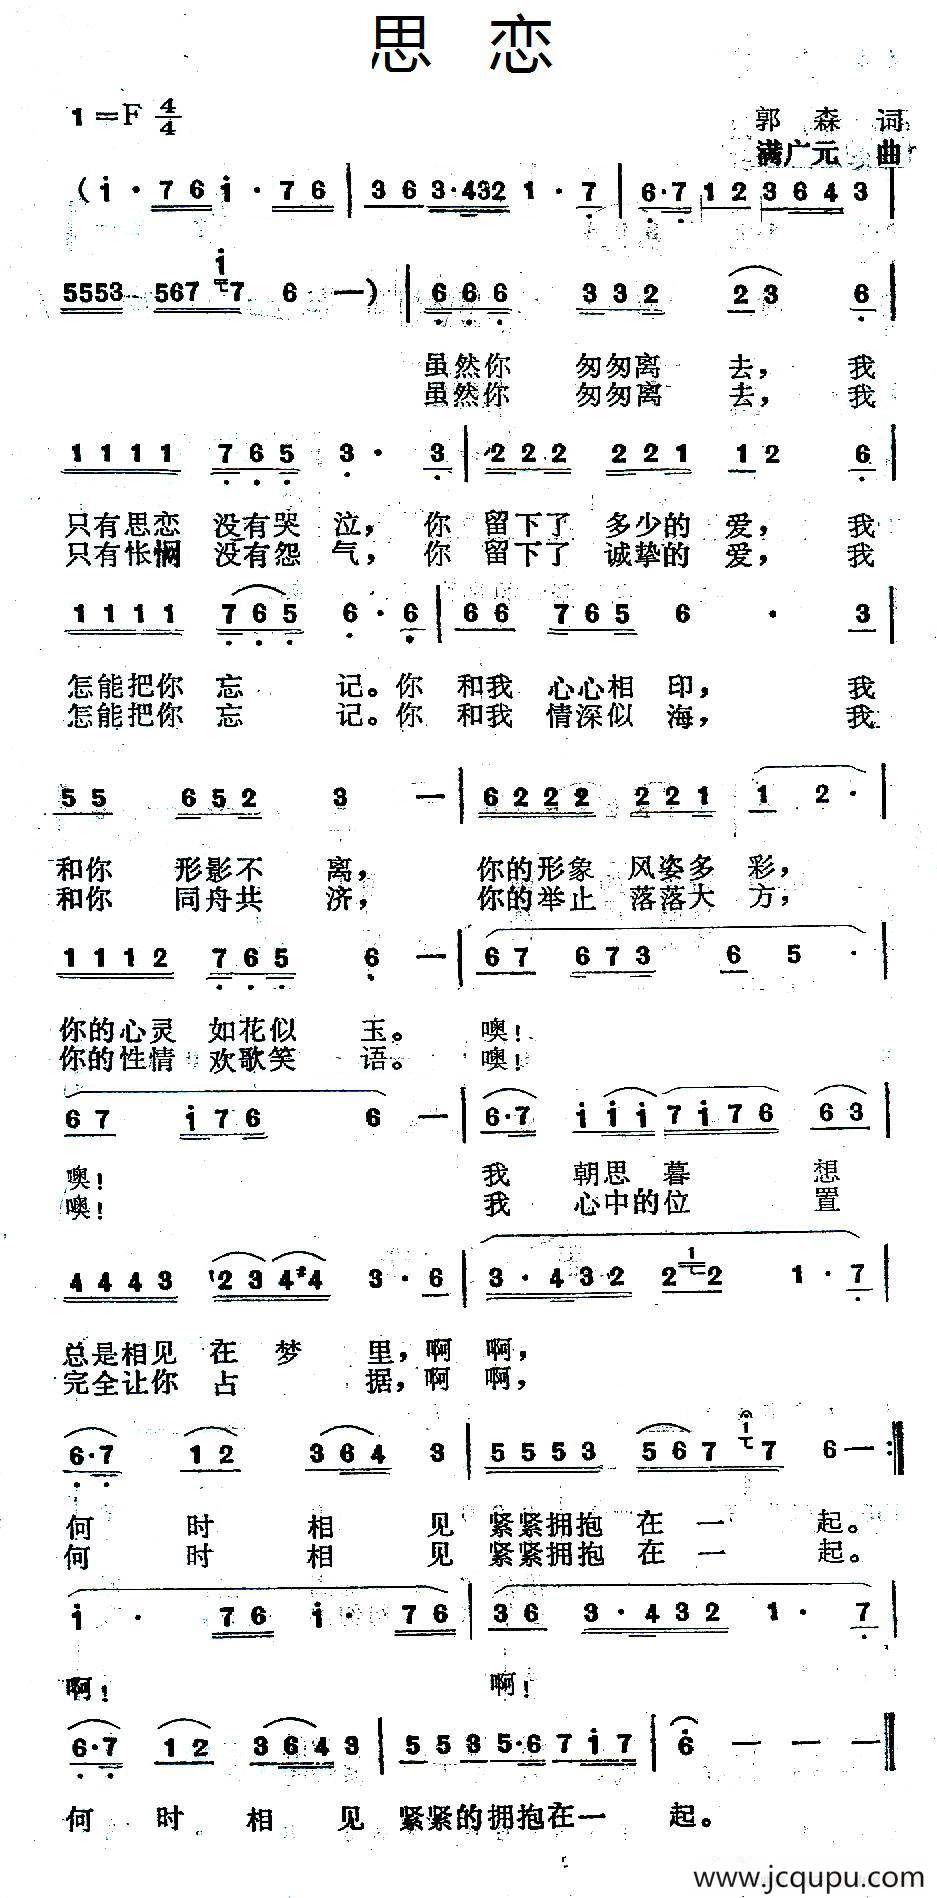 思 恋
1=F 4/4
郭 森 词
满广元 曲
(i·76i·76|363·4321·7|6·7123643|
5553567i76—)|666332236|
虽然你 匆匆离 去，我
虽然你 匆匆离 去，我
11117653·3|222221126|
只有思恋 没有哭 泣，你 留下了 多少的 爱，我
只有怅惘 没有怨 气，你 留下了 诚挚的 爱，我
11117656·6|667656·3|
怎能把你 忘 记。你 和我 心心相 印，我
怎能把你 忘 记。你 和我 情深似 海，我
556523—|622222112·|
和你 形影不 离，你的形象 风姿多 彩，
和你 同舟共 济，你的举止 落落大 方，
11127656—|6767365·|
你的心灵 如花似 玉。 噢！
你的性情 欢歌笑 语。 噢！
67i766—|6·7iii7i7663|
噢！ 我 朝思 暮 想
噢！ 我 心中的位 置
44431234#43·6|3·4322121·7|
总是相见 在 梦 里，啊 啊，
完全让你 占 据，啊 啊，
6·7123643|5553567i76—:‖
何 时 相 见 紧紧拥抱 在 一 起。
何 时 相 见 紧紧拥抱 在 一 起。
i·76i·76|363·4321·7|
啊！ 啊！
6·7123643|5535·67i7|6———‖
何 时 相 见 紧紧的拥抱在一 起。
www.jcqupu.com